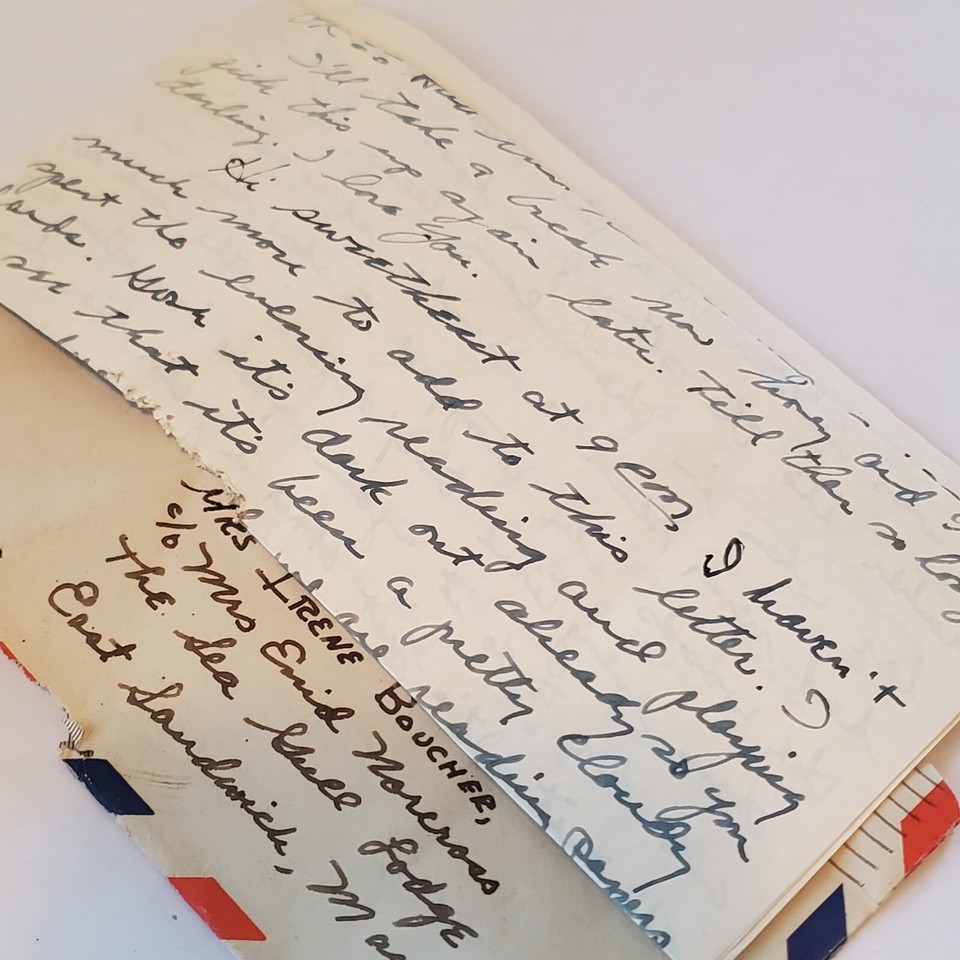 I'll take a break now honey and
pick this up again later. Till then so long
darling. I love you.
Hi sweetheart at 9 em, I haven't
much more to add to this letter. I
spent the evening reading and playing
cards. Gosh it's dark out already so you
see that it's been a pretty cloudy
reading papers
MRS IRENE BOUCHER,
c/o Mrs Enid Norcross
The Sea Gull Lodge
East Sandwich, Ma